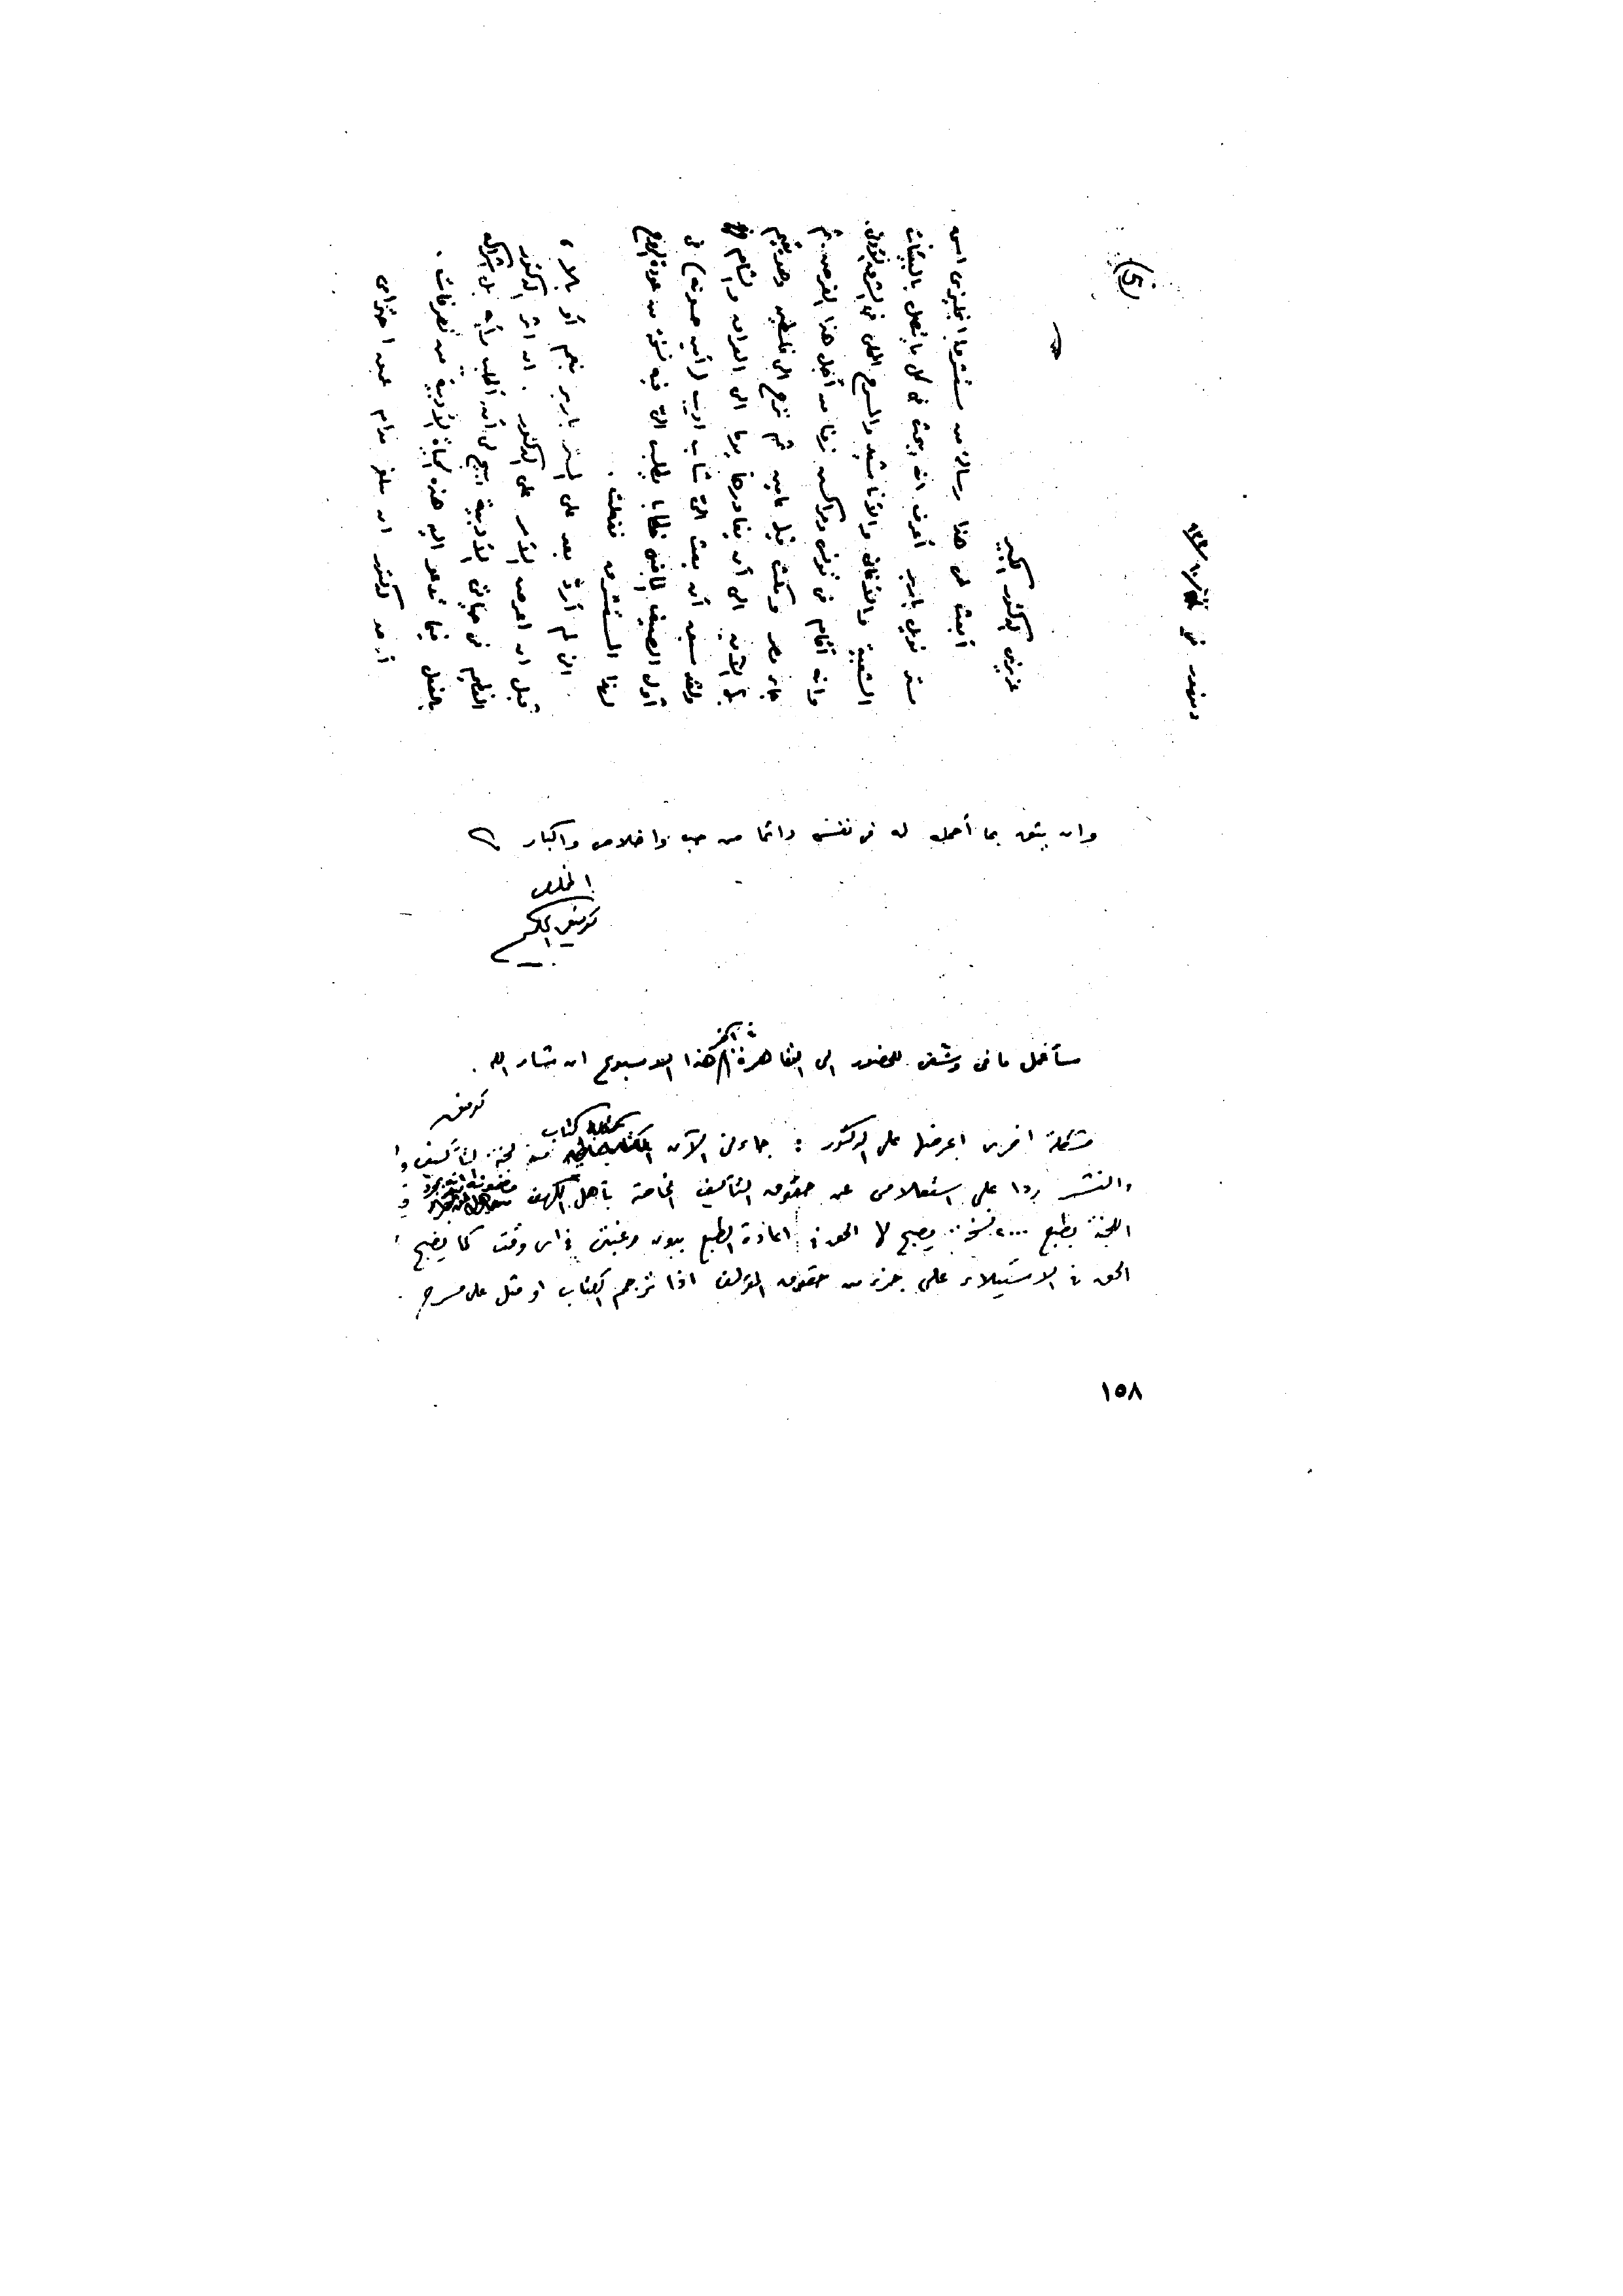 (٥)
دمنهور في
عزيزي الدكتور الكبير
أبعث لى هذا رسالة من مستشرق انجليزى اسمه
مستر نويل باربر أعرف انه يبحث في كل ما يتصل بالبيئات
الشعبية والأغانى والأناشيد والمسرح المحلى في الشرق
وانه أقام في تونس ومراكش زمنا من أجل هذا الغرض ثم
جاء مصر ومكث قبل عامين ثم نزح الى فلسطين وهو مقيم
بها الآن الى أن يغادرها يوما الى العراق والشام
ولقد سبق أن بعث الىّ شاب اديب (أمين حسونه) في
أول الصيف الماضى خطابا يطلب الىّ فيه نسخة من عودة الروح
لهذا المستشرق ففعلت.
انى لم أردّ بعد على المستر باربر بنعم أو بلا ،
قبل ان اعرض الأمر على الدكتور. ان اثر الدكتور
العظيم في حياتى الأدبية يبيح لى أن أطلب رأيه بل اشراكه
بالفعل فيما تدعو اليه هذه الحياة الأدبية من تصرفات.
أرجو الدكتور ان يبلغ مدام عميق احترامى
وان يثق بما أحمل له في نفسى دائما من حب واخلاص واكبار
المخلص
توفيق الحكيم
سأعمل ما في وسعى للحضور الى القاهرة في آخر هذا الاسبوع ان شاء الله.
توفيق
مشكلة اخرى اعرضها على الدكتور : جاءنى الآن كتاب من لجنة التأليف
والنشر ردا على استعلامى عن حقوق التأليف الخاصة بأهل الكهف مضمونه انه بمجرد
اللجنة بطبع ٢٠٠٠ نسخة يصبح لها الحق في اعادة الطبع بدون رغبتى في اى وقت كما يصبح
الحق في الاستيلاء على جزء من حقوق المؤلف اذا ترجم الكتاب او مثل على مسرح.
١٥٨